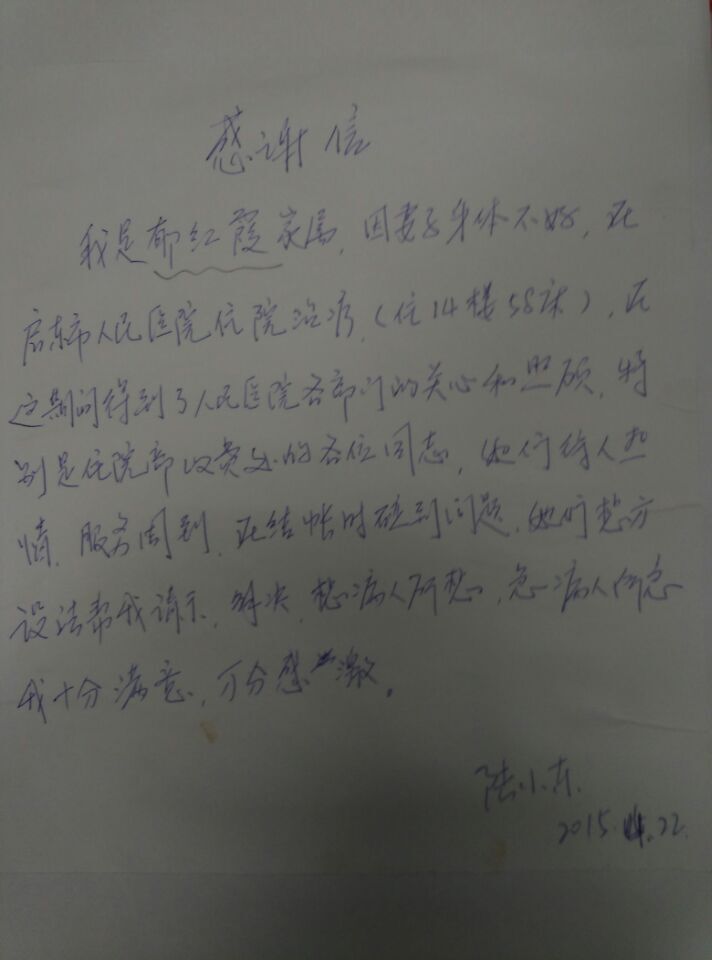 感谢信
我是郁红霞家属,因妻子身体不好,在
启东市人民医院住院治疗,(住14楼58床),在
这期间得到了人民医院各部门的关心和照顾,特
别是住院部收费处的各位同志,她们待人热
情,服务周到,在结帐时碰到问题,她们想方
设法帮我请示,解决,想病人所想,急病人所急
我十分满意,万分感激。
陆小东
2015.
.22